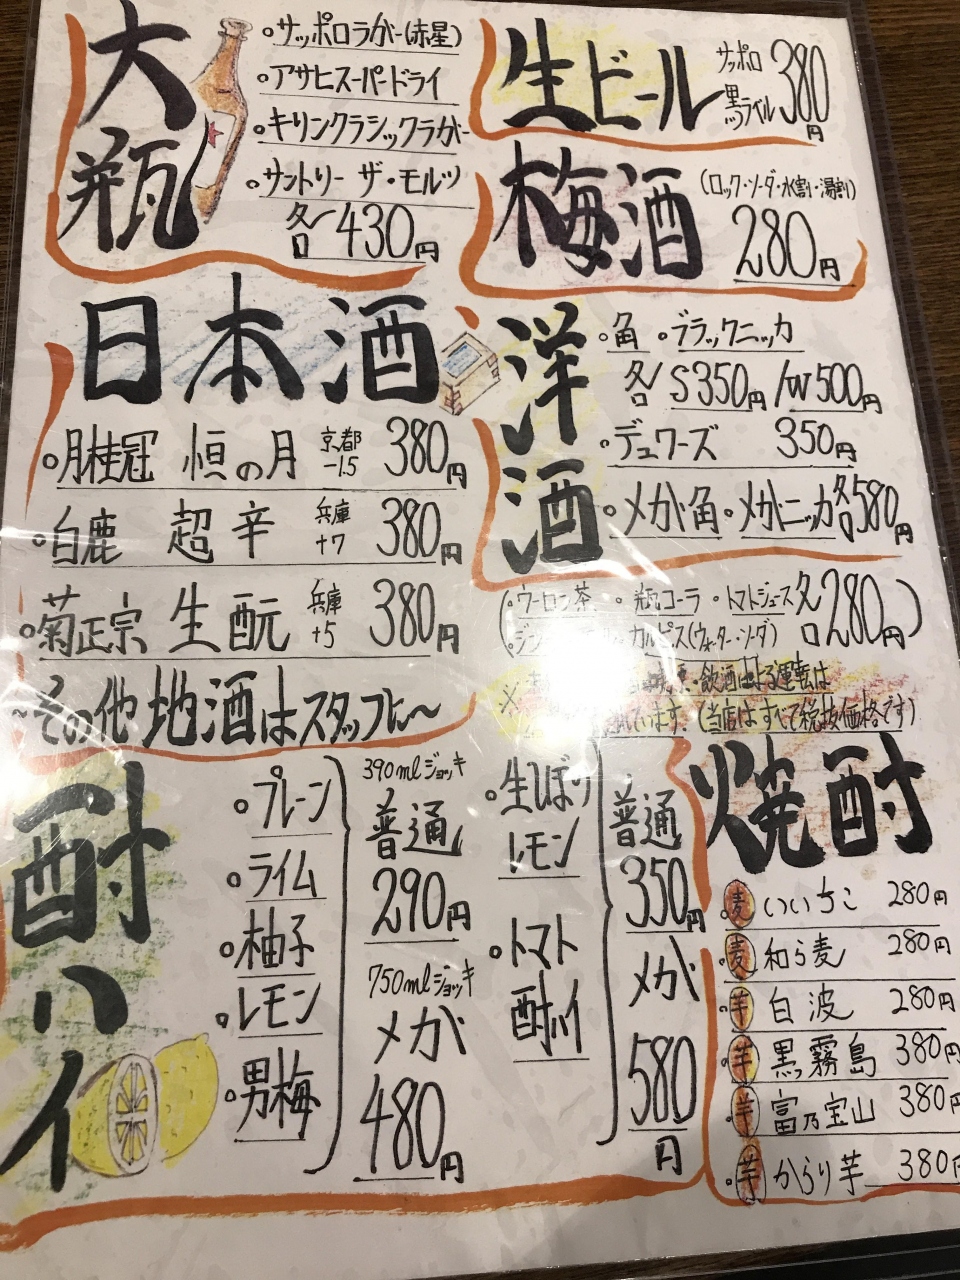 大瓶
サッポロラガー(赤星)
アサヒスーパードライ
キリンクラシックラガー
サントリー ザ・モルツ
各430円
生ビール サッポロ黒ラベル 380円
梅酒 (ロック・ソーダ・水割・湯割)
280円
日本酒
月桂冠 恒の月 京都-1.5 380円
白鹿 超辛 兵庫+7 380円
菊正宗 生酛 兵庫+5 380円
~その他地酒はスタッフに~
洋酒
角 ・ブラックニッカ
各S350円/W500円
デュワーズ 350円
メガ角・メガニッカ各580円
(・ウーロン茶 ・瓶コーラ ・トマトジュース 各280円)
カルピス(ウォーター・ソーダ)
※ 飲酒による運転は
います。(当店はすべて税抜価格です)
酎ハイ
プレーン
ライム
柚子
レモン
男梅
390mlジョッキ
普通
290円
750mlジョッキ
メガ
480円
生しぼり
レモン
トマト
酎ハイ
普通
350円
メガ
580円
焼酎
麦 いいちこ 280円
麦 和ら麦 280円
芋 白波 280円
芋 黒霧島 380円
芋 富乃宝山 380円
芋 からり芋 380円